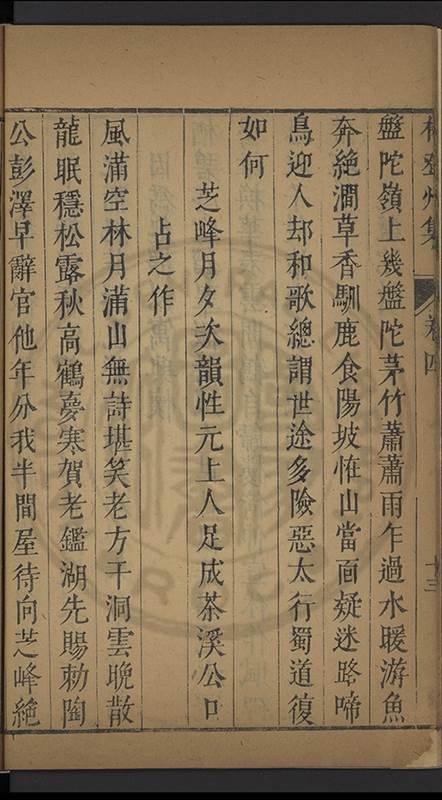 盤陀嶺上幾盤陀茅竹蕭蕭雨乍過水暖游魚
奔絶澗草香馴鹿食陽坡恠山當面疑迷路啼
鳥迎人却和歌總謂世途多險惡太行蜀道復
如何
芝峰月夕次韻性元上人足成茶溪公口
占之作
風滿空林月滿山無詩堪笑老方干洞雲晩散
龍眠穩松露秋高鶴夢寒賀老鑑湖先賜勅陶
公彭澤早辭官他年分我半間屋待向芝峰絶
州集
卷四
十三